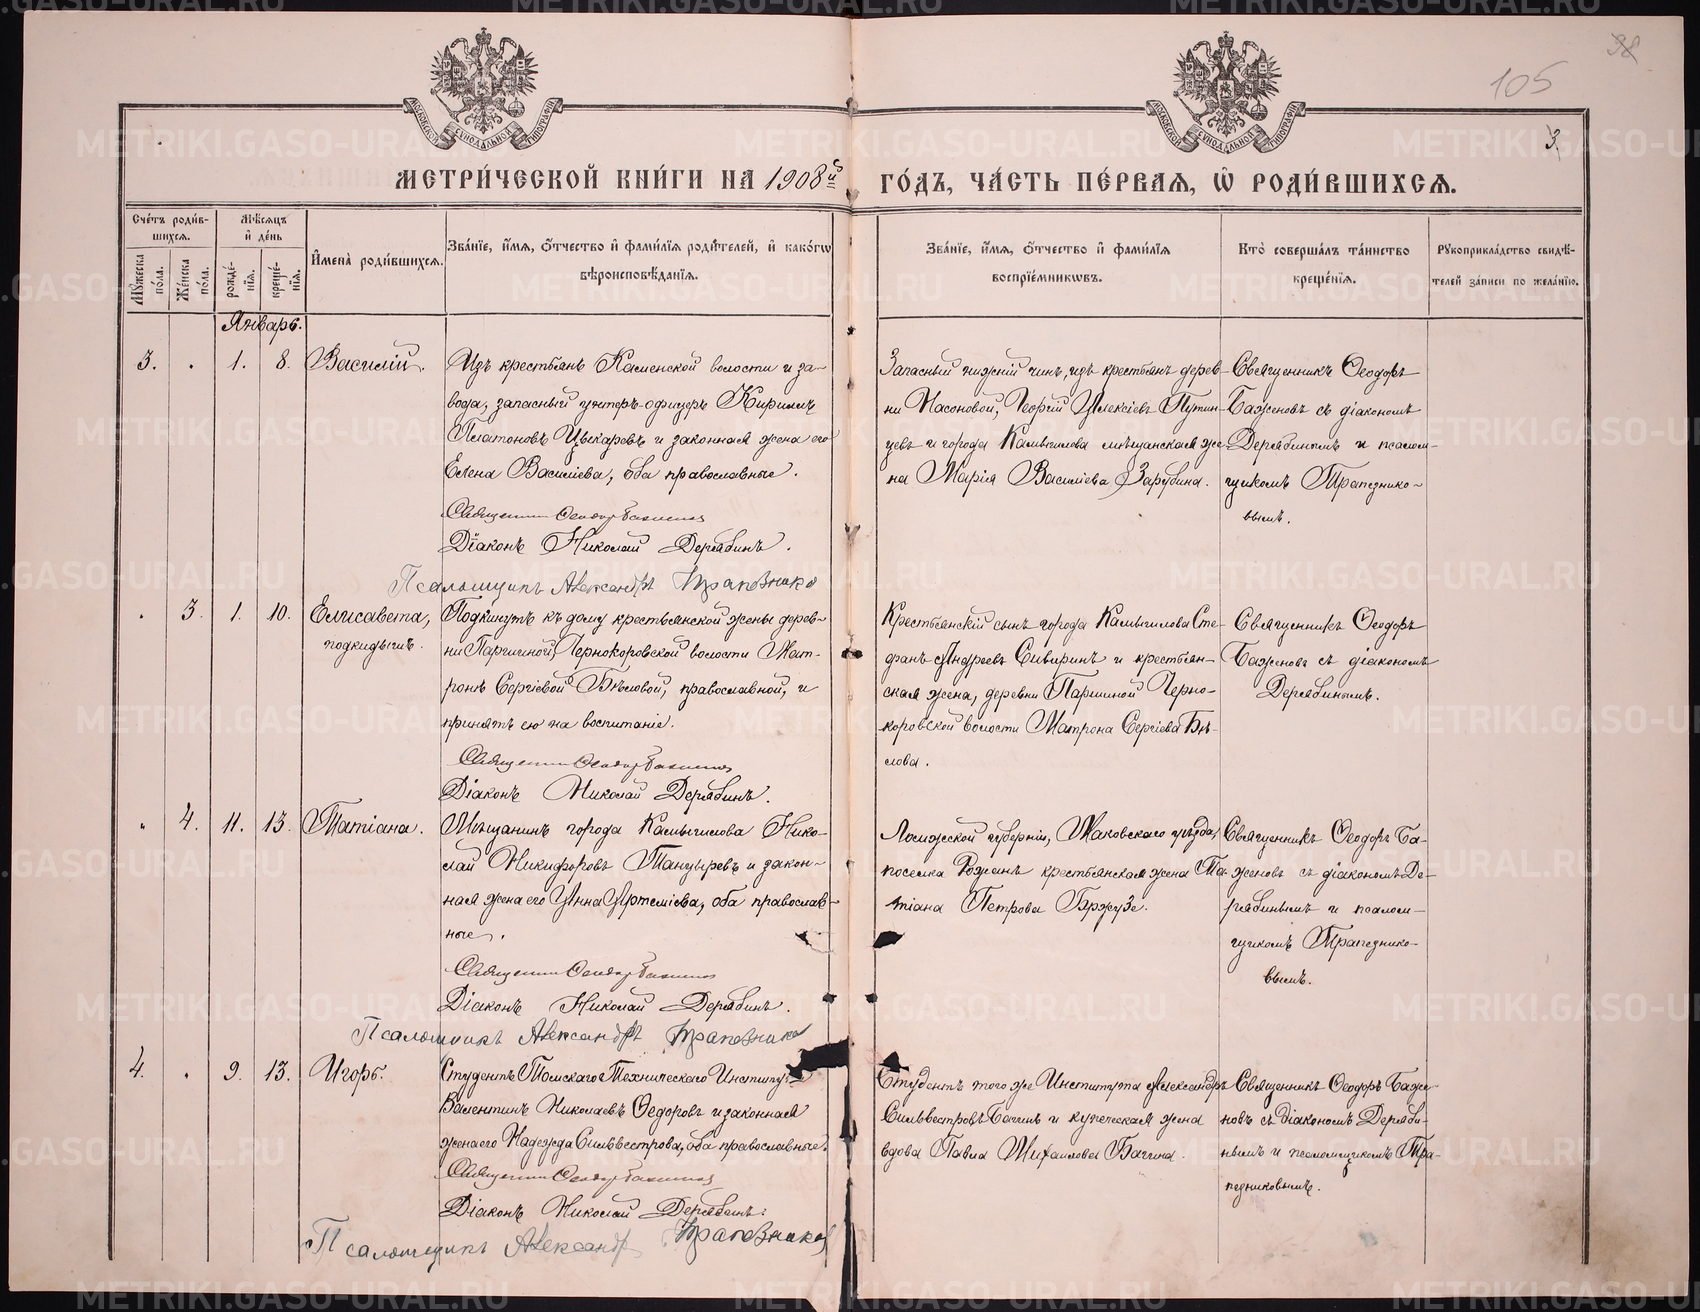 38
105
3.
МОСКОВСКОЙ СѴНОДАЛЬНОЙ ТИПОГРАФІИ
МОСКОВСКОЙ СѴНОДАЛЬНОЙ ТИПОГРАФІИ
МЕТРИ́ЧЕСКОЙ КНИ́ГИ НА 1908ый ГО́ДЪ, ЧА́СТЬ ПЕ́РВАЯ, Ѡ҆ РОДИ́ВШИХСЯ.
Сче́тъ роди́в-
шихся.
Мѣ́сяцъ
и҆ де́нь
Мꙋ́жеска по́ла.
Же́нска по́ла.
рожде́-нїя.
креще́-нїя.
И҆мена̀ роди́вшихся.
Зва́нїе, и҆́мя, ѻ҆́тчество и҆ фами́лїя роди́телей, и҆ како́гѡ
вѣроисповѣ́данїя.
Зва́нїе, и҆́мя, ѻ҆́тчество и҆ фами́лїя
воспрїе́мникѡвъ.
Кто̀ соверша́лъ та́инство
креще́нїя.
Рꙋкоприкла́дство свидѣ́-
телей за́писи по жела́нїю.
Январь.
3. . 1. 8. Василій.
Изъ крестьянъ Каменской волости и за-
вода, запасный унтеръ-офицеръ Кириллъ
Платоновъ Цыкаревъ и законная жена его
Елена Василіева, оба православные.
Священникъ Ѳеодоръ Баженовъ
Діаконъ Николай Дерябинъ.
Псаломщикъ Александръ Трапезнико
Запасный нижній чинъ, изъ крестьянъ дерев-
ни Насоновой, Георгій Алексіевъ Путин-
цевъ и города Камышлова мѣщанская же-
на Марія Василіева Зарубина.
Священникъ Ѳеодоръ
Баженовъ съ діакономъ
Дерябинымъ и псалом-
щикомъ Трапезнико-
вымъ.
. 3. 1. 10. Елисавета,
подкидышъ.
Подкинутъ къ дому крестьянской жены дерев-
ни Паршиной, Чернокоровской волости Мат-
ронѣ Сергіевой Бѣловой, православной, и
принятъ ею на воспитаніе.
Священникъ Ѳеодоръ Баженовъ
Діаконъ Николай Дерябинъ.
Крестьянскій сынъ города Камышлова Сте-
фанъ Андреевъ Сивиринъ и крестьян-
ская жена, деревни Паршиной Черно-
коровской волости Матрона Сергіева Бѣ-
лова.
Священникъ Ѳеодоръ
Баженовъ съ діакономъ
Дерябинымъ.
" 4. 11. 13. Татіана.
Мѣщанинъ города Камышлова Нико-
лай Никифоровъ Танцыревъ и закон-
ная жена его Анна Артеміева, оба православ-
ные.
Священникъ Ѳеодоръ Баженовъ
Діаконъ Николай Дерябинъ.
Псаломщикъ Александръ Трапезников
Ломжской губерніи, Маковскаго уѣзда,
поселка Рожанъ крестьянская жена Та-
тіана Петрова Бржузе.
Священникъ Ѳеодоръ Ба-
женовъ съ діакономъ Де-
рябинымъ и псалом-
щикомъ Трапезнико-
вымъ.
4. . 9. 13. Игорь.
Студентъ Томскаго Техническаго Институ
Валентинъ Николаевъ Ѳедоровъ и законная
жена его Надежда Сильвестрова, оба православные.
Священникъ Ѳеодоръ Баженовъ
Діаконъ Николай Дерябинъ.
Псаломщикъ Александр Трапезников
Студентъ того же Института Александръ
Сильвестровъ Багинъ и купеческая жена
вдова Павла Михаилова Багина.
Священникъ Ѳеодоръ Баже-
новъ съ діакономъ Деряби-
нымъ и псаломщикомъ Тра-
пезниковымъ.
METRIKI.GASO-URAL.RU